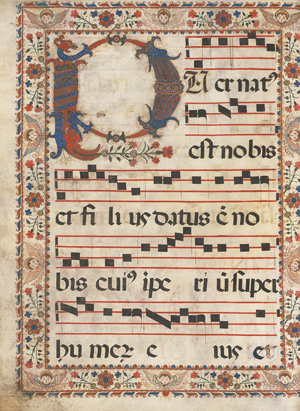 PUer natꝰ
est nobis
et fi li us datus ē no
bis cuiꝰ ipe ri ū super
hu meꝝ e ius et